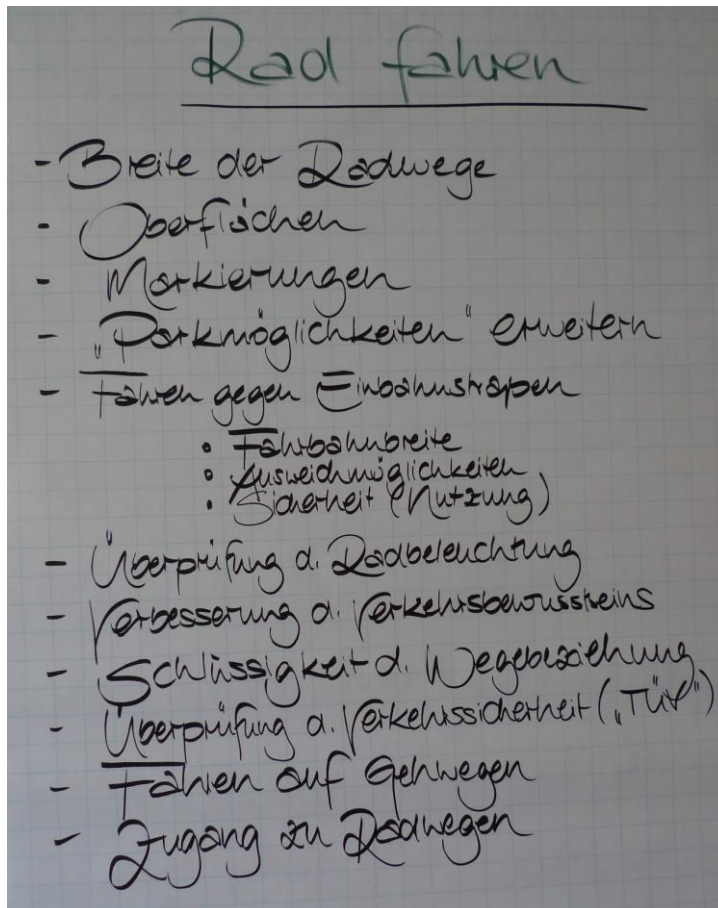 Rad fahren
- Breite der Radwege
- Oberflächen
- Markierungen
- „Parkmöglichkeiten" erweitern
- Fahren gegen Einbahnstraßen
• Fahrbahnbreite
• Ausweichmöglichkeiten
• Sicherheit (Nutzung)
- Überprüfung d. Radbeleuchtung
- Verbesserung d. Verkehrsbewusstseins
- Schlüssigkeit d. Wegebeziehung
- Überprüfung d. Verkehrssicherheit („TÜV")
- Fahren auf Gehwegen
- Zugang zu Radwegen